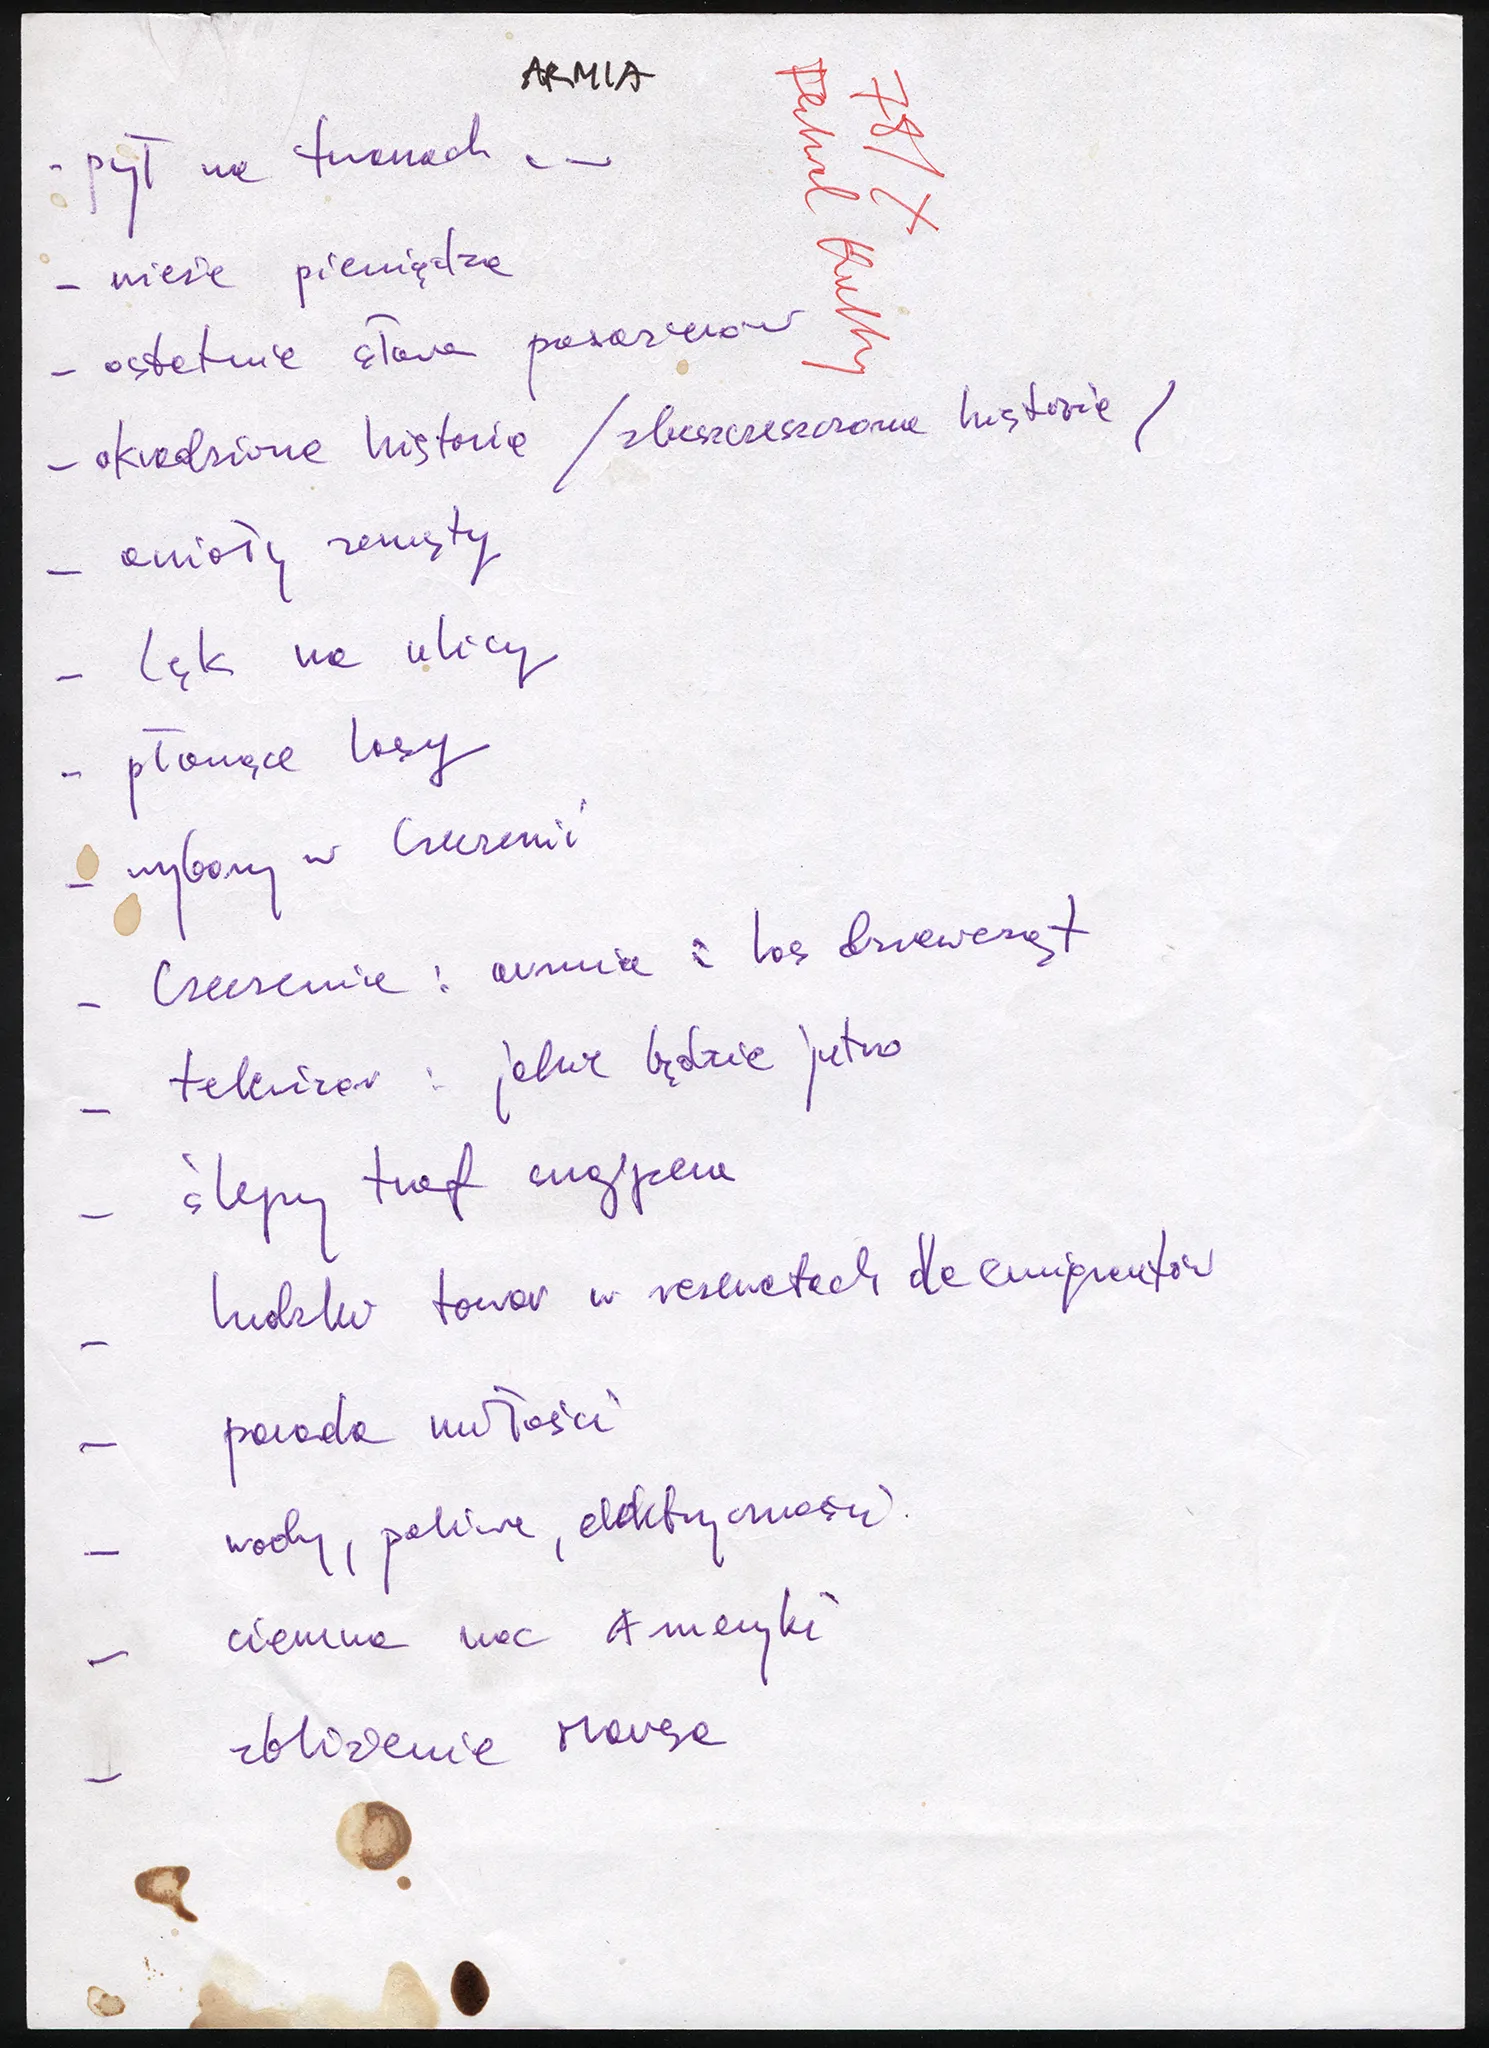 ARMIA
78/X
- pył na twarzach . –
- niesie pieniądze
- ostatnie słowa pasażerów
- okradziona historia / zbeszczeszczona historia /
- anioły zemsty
- lęk na ulicy
- płonące lasy
- wybory w Czeczenii
- Czeczenia : armia i los dziewcząt
- telewizor : jakie będzie jutro
- ślepy traf snajpera
- ludzki towar w rezerwatach dla emigrantów
- parada miłości
- wody, paliwa, elektryczności.
- ciemna noc Ameryki
- zbliżenie Marsa